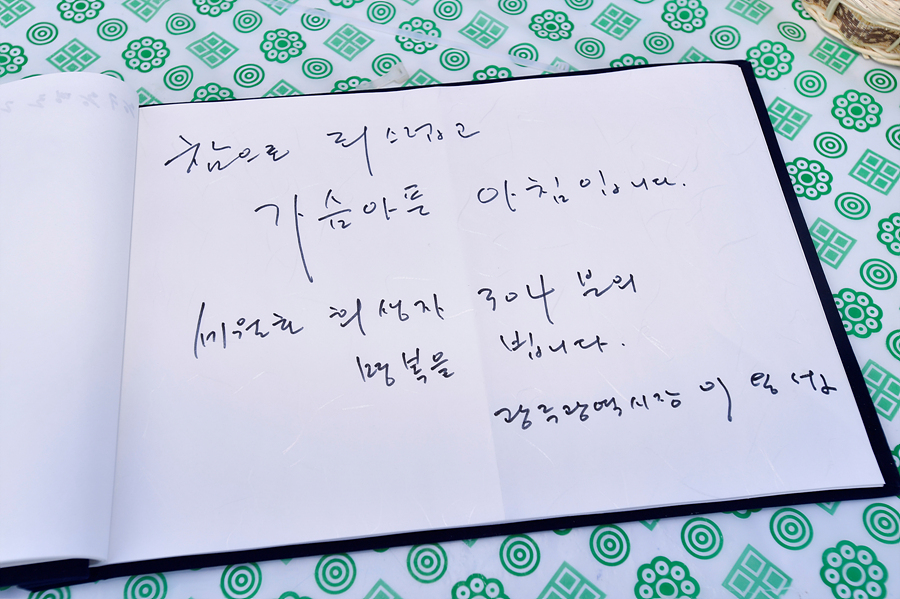 참으로 죄스럽고
가슴아픈 아침입니다.
세월호 희생자 304 분의
명복을 빕니다.
광주광역시장 이용섭